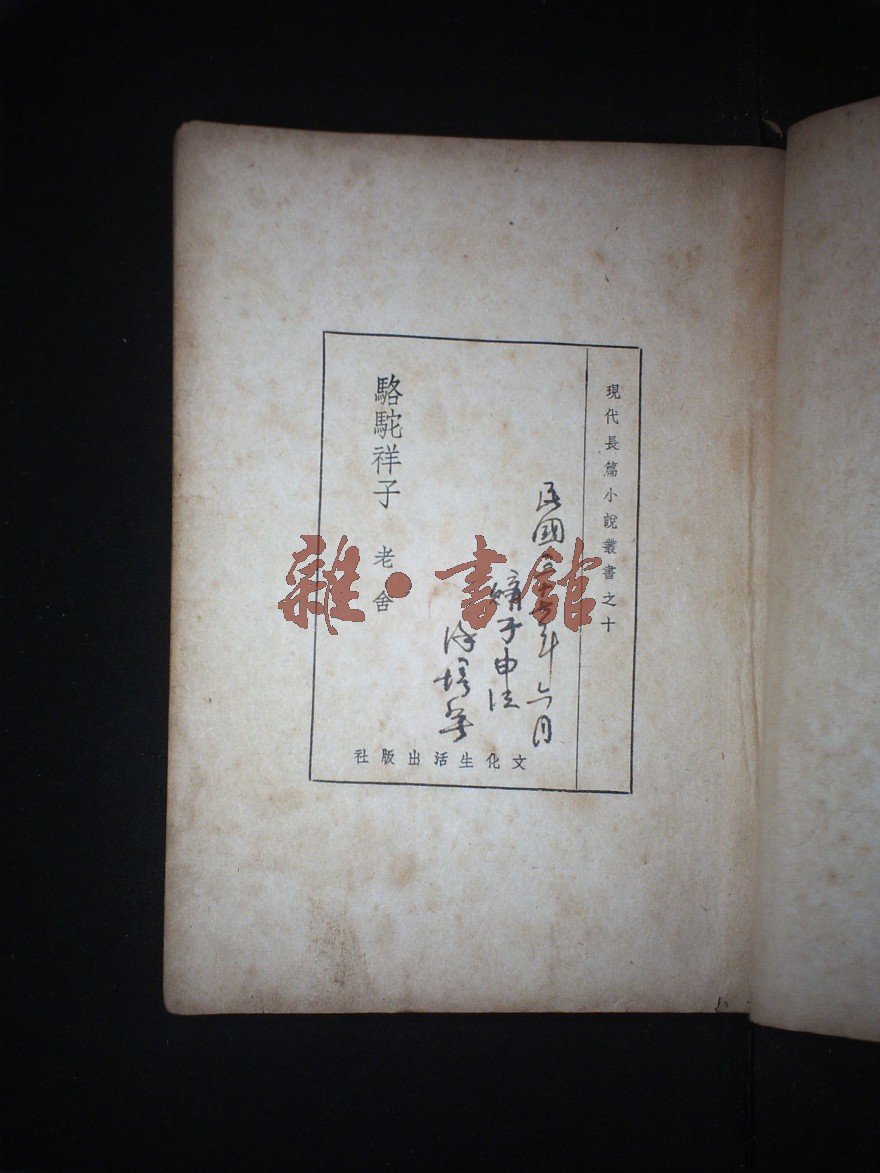 現代長篇小說叢書之十
民國三十七年六月
購于申江
徐培華
駱駝祥子 老舍
文化生活出版社
雜·書館